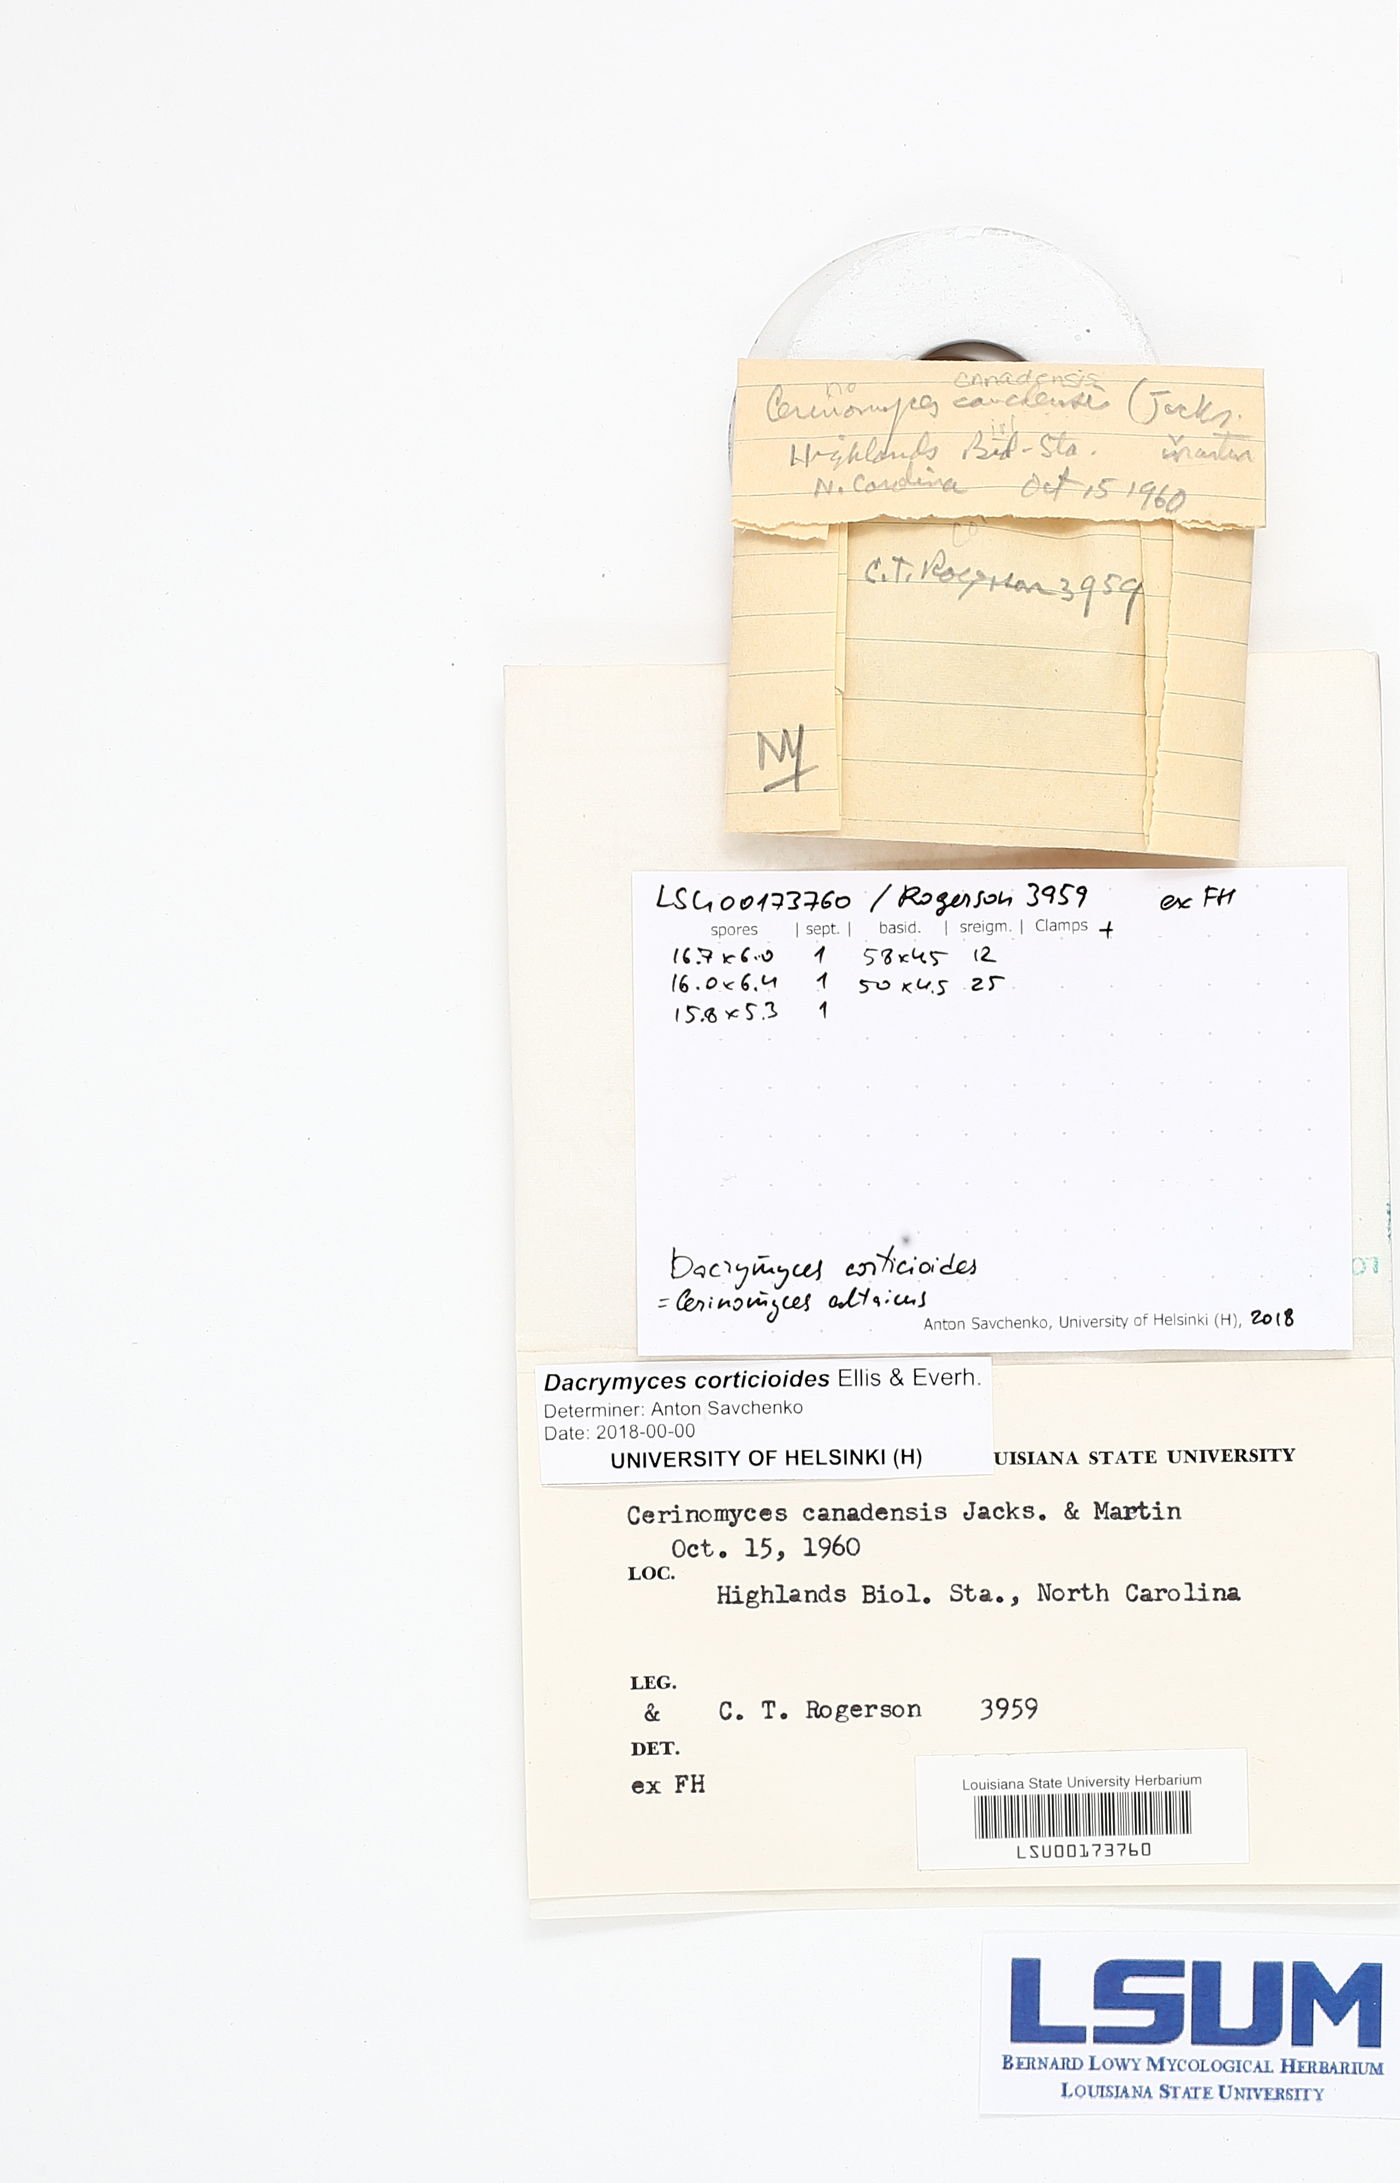 no canadensis
Cerinomyces canadensis (Jacks.
iol
Highlands Biol-Sta. Martin
N. Carolina Oct 15 1960
C.T. Rogerson 3959
NY
LSU00173760 / Rogerson 3959 ex FH
spores | sept. | basid. | sreigm. | Clamps +
16.7 x 6.0 1 58 x 4.5 12
16.0 x 6.4 1 50 x 4.5 25
15.8 x 5.3 1
Dacrymyces corticioides
= Cerinomyces altaicus
Anton Savchenko, University of Helsinki (H), 2018
Dacrymyces corticioides Ellis & Everh.
Determiner: Anton Savchenko
Date: 2018-00-00
UNIVERSITY OF HELSINKI (H)
UISIANA STATE UNIVERSITY
Cerinomyces canadensis Jacks. & Martin
Oct. 15, 1960
LOC.
Highlands Biol. Sta., North Carolina
LEG.
& C. T. Rogerson 3959
DET.
ex FH
Louisiana State University Herbarium
LSU00173760
LSUM
BERNARD LOWY MYCOLOGICAL HERBARIUM
LOUISIANA STATE UNIVERSITY